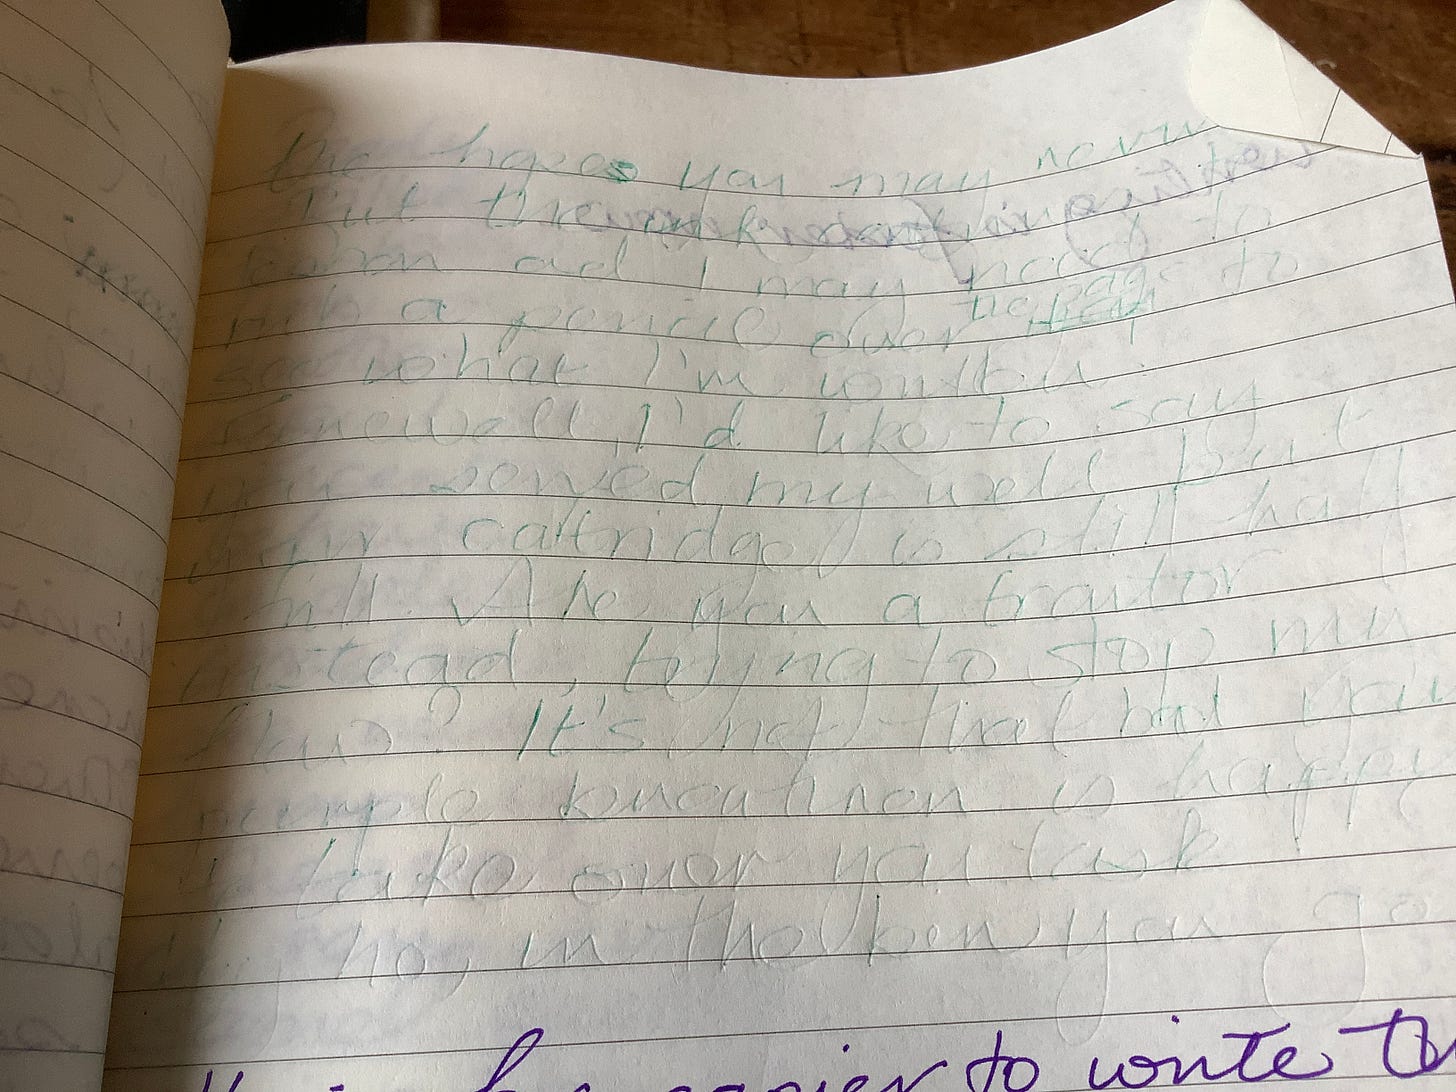 the hopes you may never
but the ink is drying to
and I may need to
rub a pencil over the page to
see what I'm writing.
Farewell, I'd like to say
you served my well but
your cartridge is still half
full. Are you a traitor
instead, trying to stop my
flaws? It's not that bad your
purple brethren is happy
to take over you task
ho, in the bin you go
easier to write